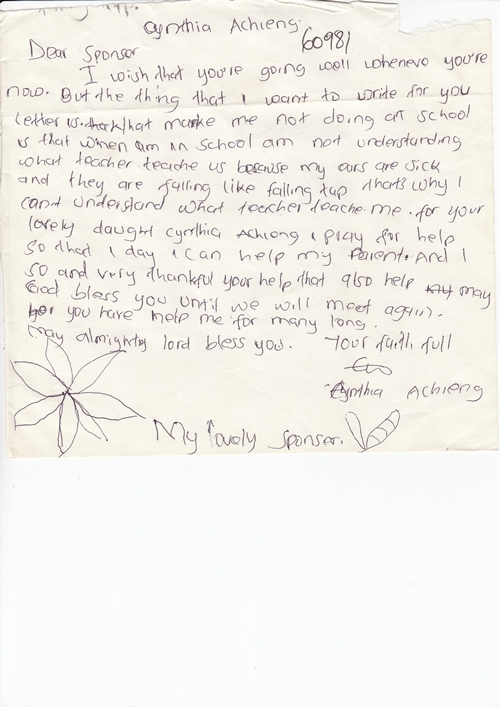 Cynthia Achieng
60981
Dear Sponsor
I wish that you're going well whenever you're
now. But the thing that I want to write for you
letter is that make me not doing on school
is that when am in school am not understanding
what teacher teache us because my ears are sick
and they are falling like falling tap that's why I
can't understand what teacher teache me. for your
lovely daught Cynthia Achieng I pray for help
so that I day I can help my Parent. And I
so and very thankful your help that also help may
God bless you until we will meet again.
you have help me for many long.
May almighty lord bless you. Your faith full
Cynthia Achieng
My lovely sponser.